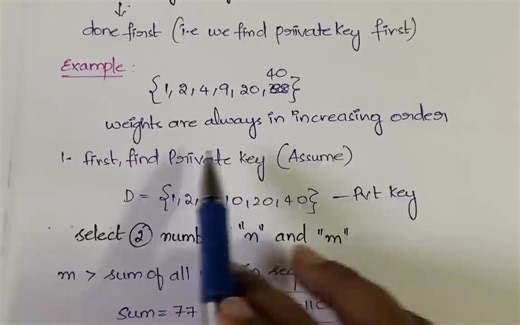 done first (i.e we find private key first)
Example :
40
{1, 2, 4, 9, 20, 38}
weights are always in increasing order
1- first, find Private key (Assume)
D = {1, 2, 10, 20, 40} - Pvt key
select 2 "n" and "m"
m > sum of all in
sum = 77